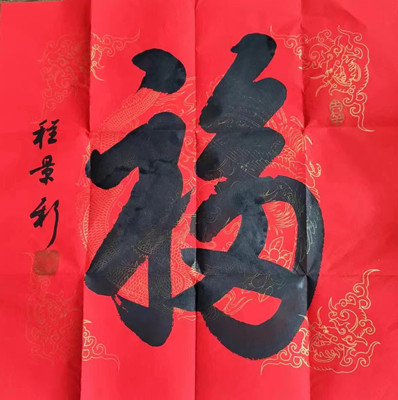 福
程景彩